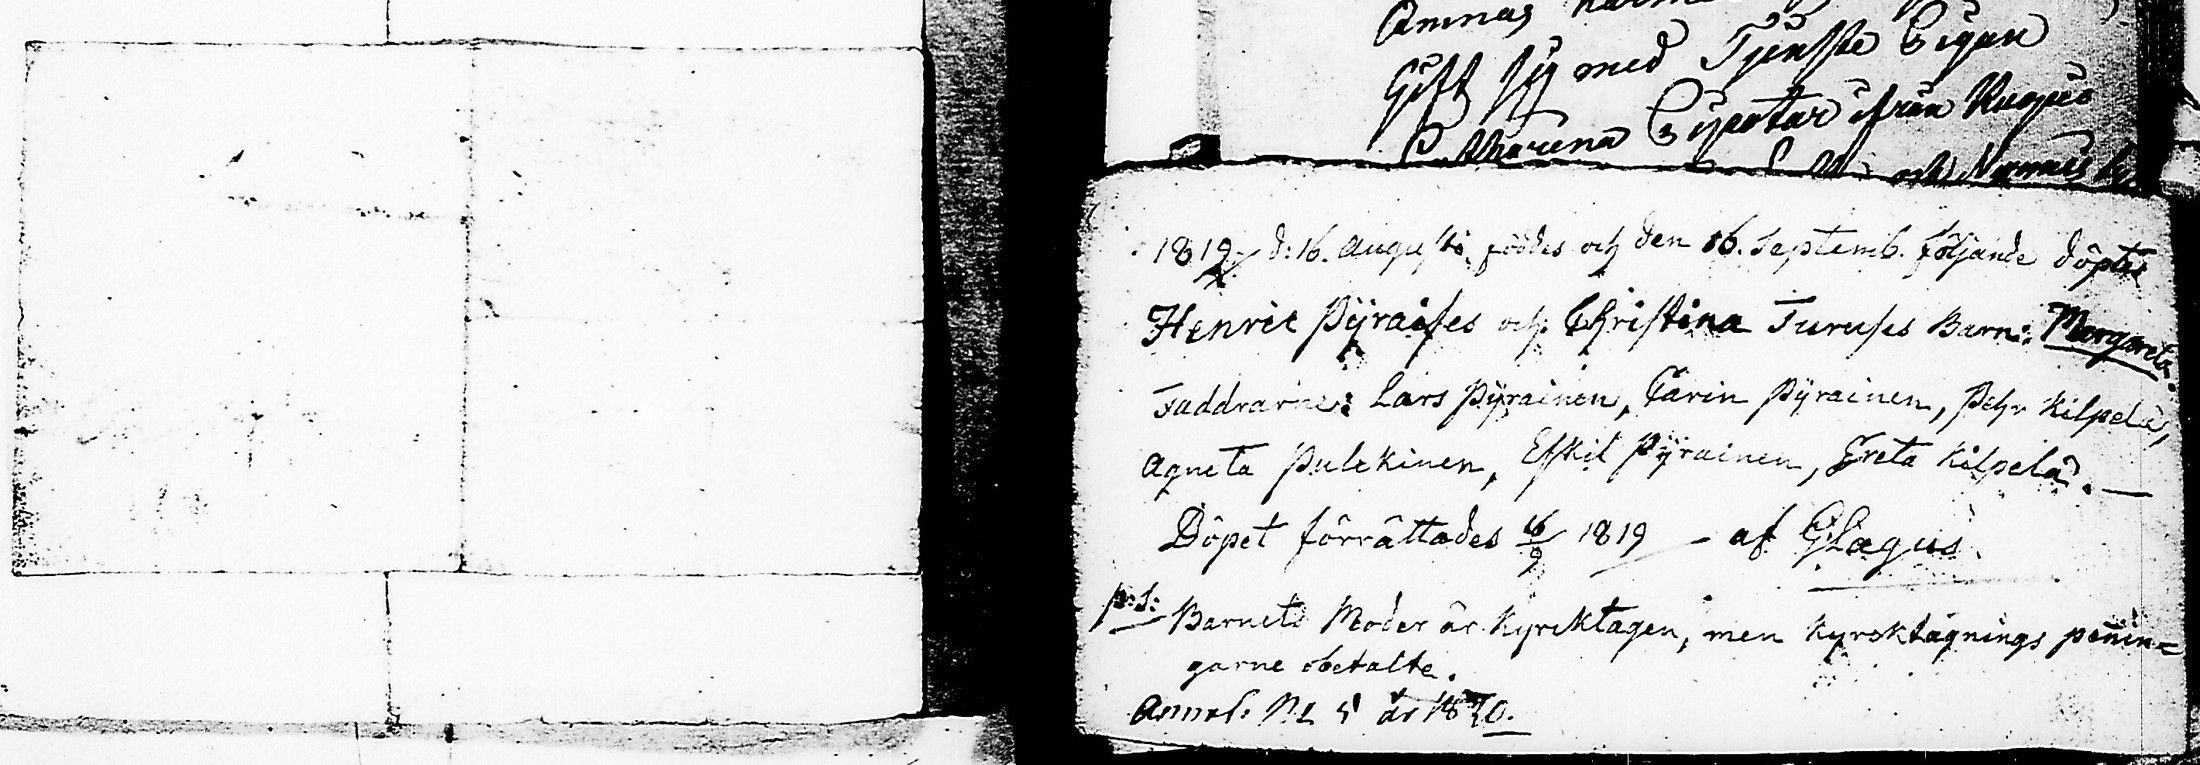 Gift sig med Tjenste Pigan
Catharena ifrån
1819. d: 16. Augusti föddes och den 16. Septemb. följande döptes
Henric Pÿraises och Christina Turuses Barn: Margareta.
Faddrarne: Lars Pÿrainen, Carin Pÿrainen, Pehr Kilpelä,
Agneta Pulckinen, Eskil Pÿrainen, Greta Kilpeläd. —
Döpet förrättades 16/9 1819 — af GLagus.
p:s: Barnets Moder är Kyrcktagen, men Kyrcktagnings peñin=
garne obetalte.
Annot: N: 5 år 1820.